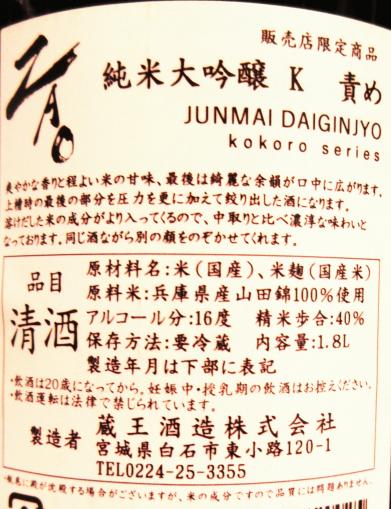 販売店限定商品
ZAO
純米大吟醸 K 責め
JUNMAI DAIGINJYO
kokoro series
爽やかな香りと程よい米の甘味、最後は綺麗な余韻が口中に広がります。
上槽時の最後の部分を圧力を更に加えて搾り出した酒になります。
溶けだした米の成分がより入ってくるので、中取りと比べ濃厚な味わいと
なっております。同じ酒ながら別の顔をのぞかせてくれます。
品目
清酒
原材料名:米(国産)、米麹(国産米)
原料米:兵庫県産山田錦100%使用
アルコール分:16度 精米歩合:40%
保存方法:要冷蔵 内容量:1.8L
製造年月は下部に表記
・飲酒は20歳になってから。妊娠中・授乳期の飲酒はお控えください。
・飲酒運転は法律で禁じられています。
製造者
蔵王酒造株式会社
宮城県白石市東小路120-1
TEL0224-25-3355
が沈殿する場合がございますが、米の成分ですので品質には問題ありません。